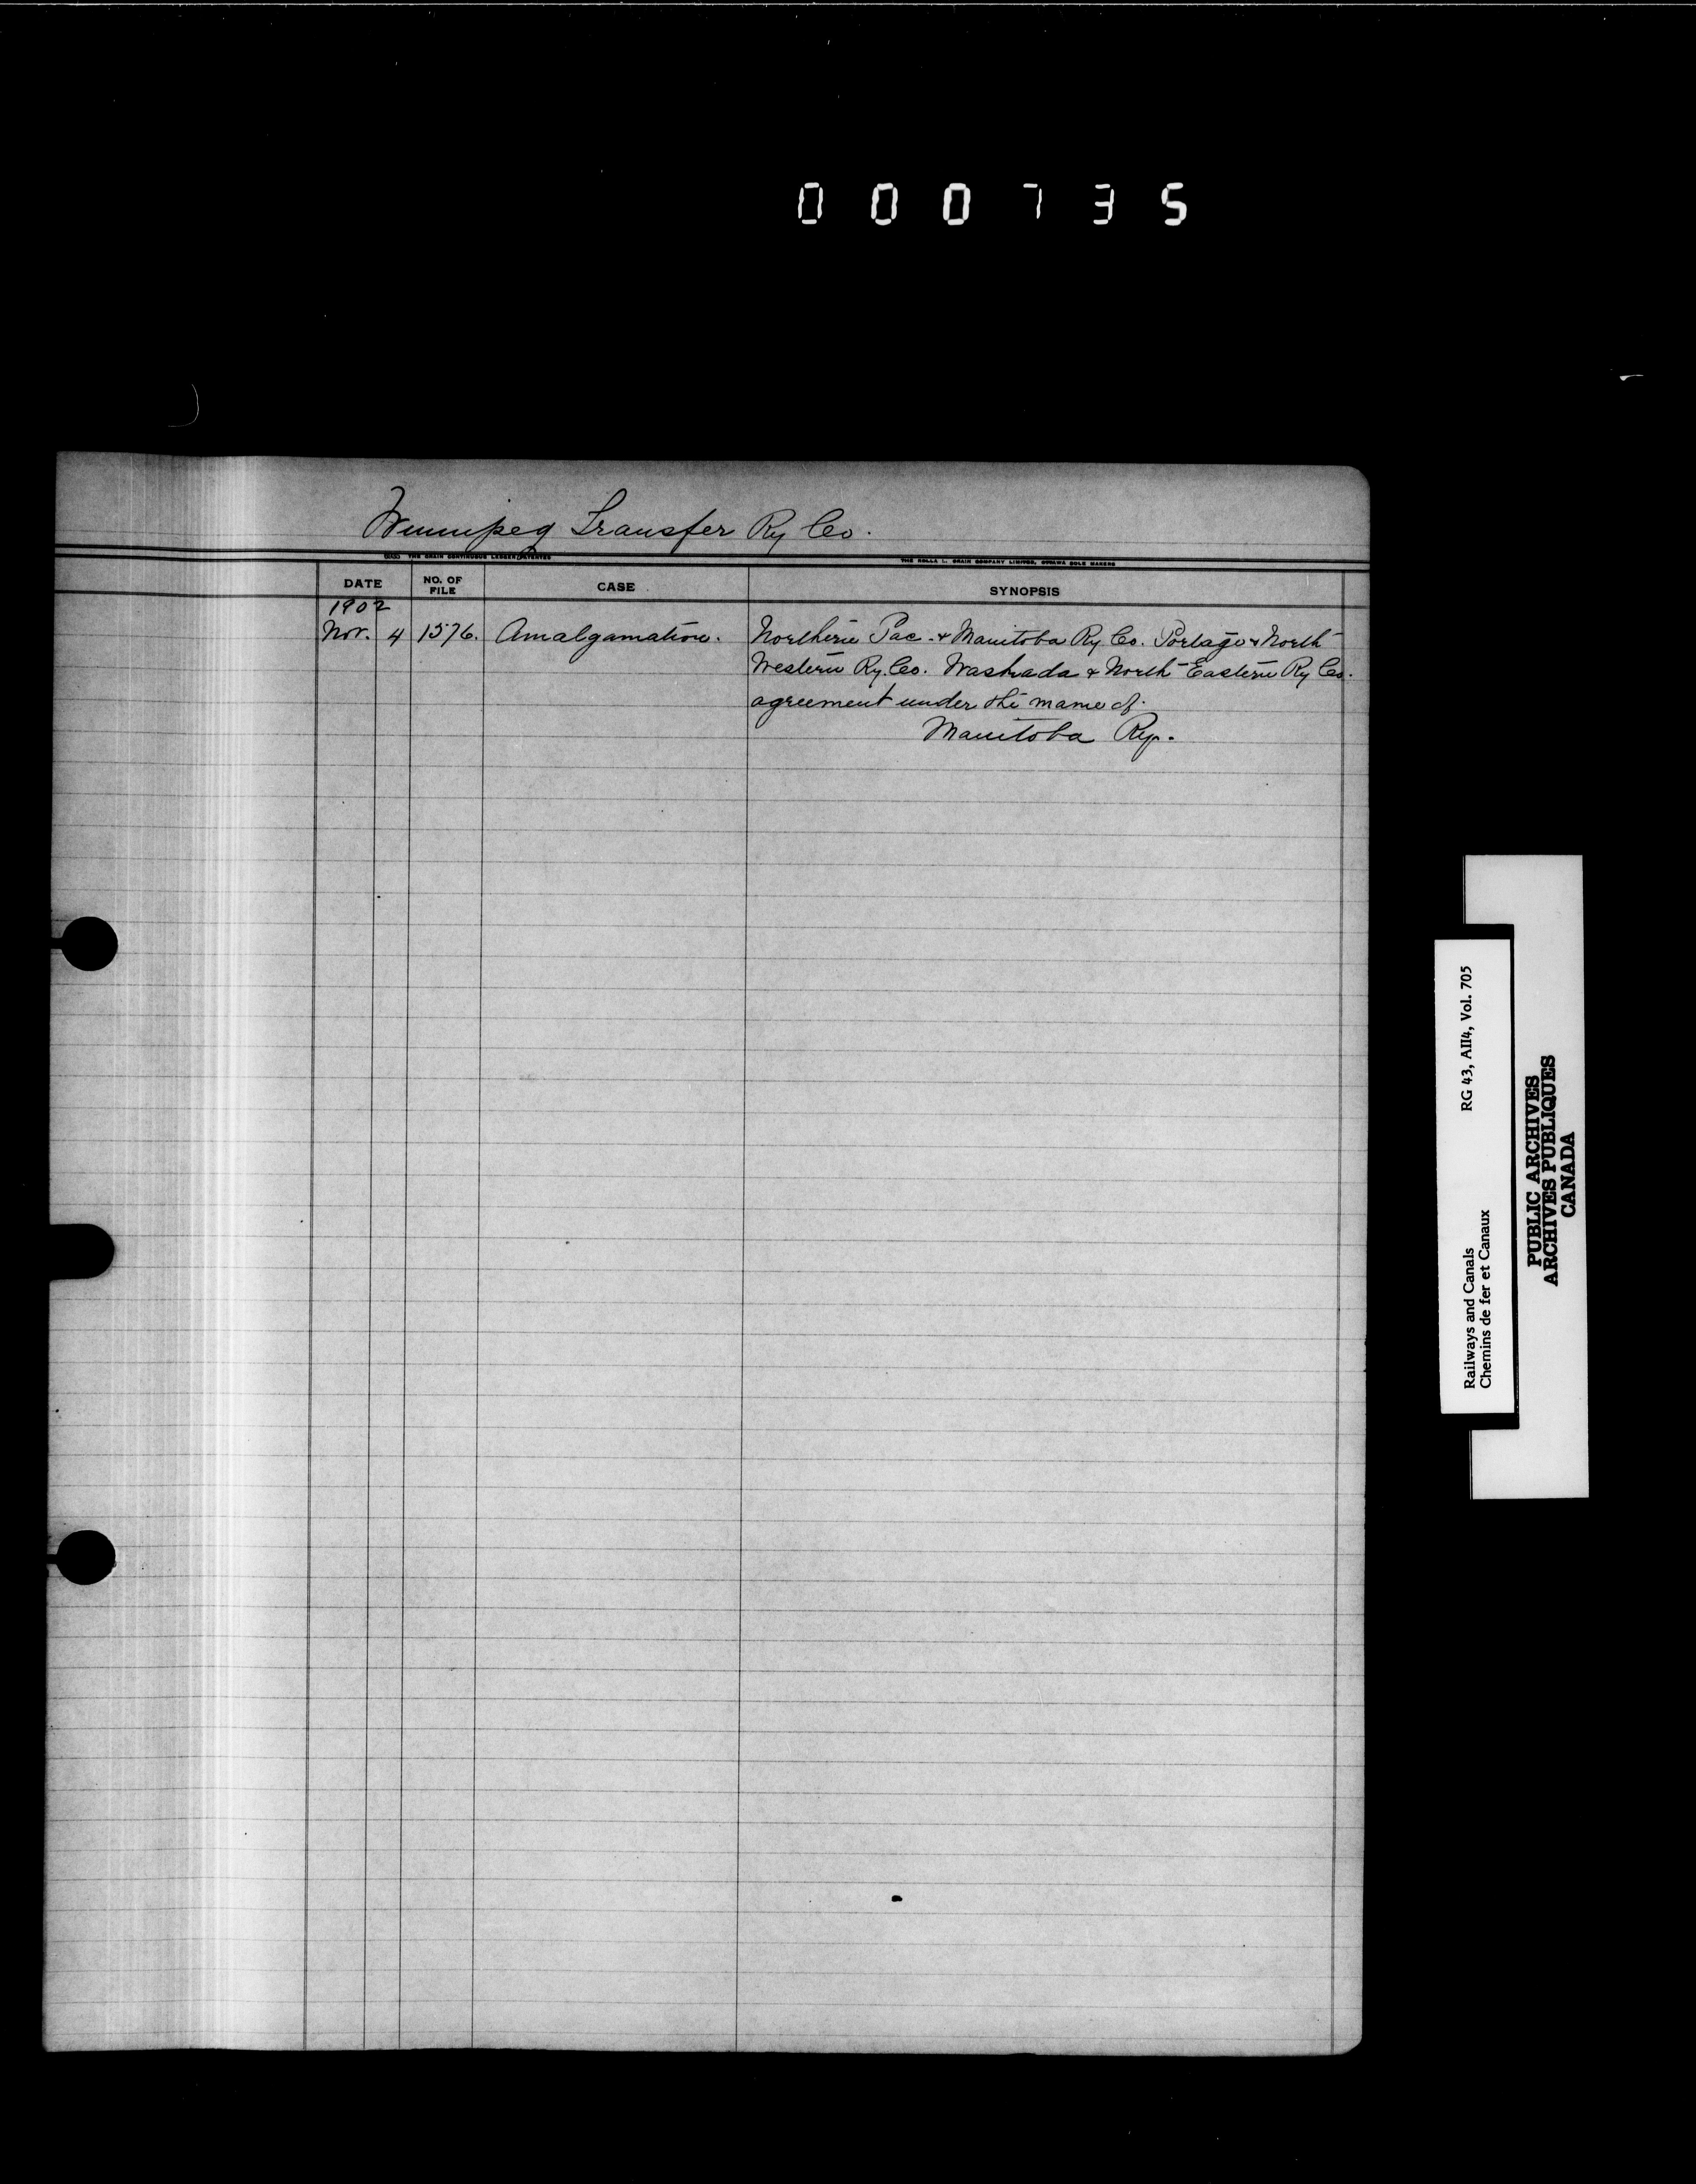 000735
Winnipeg Transfer Ry Co.
THE GRAIN CONTINUOUS LEDGER, PATENTED
THE ROLLA L. CRAIN COMPANY LIMITED, OTTAWA SOLE MAKERS
DATE NO. OF FILE CASE SYNOPSIS
1902
Nov. 4 1576. Amalgamation. Northern Pac. & Manitoba Ry Co. Portage & North
Western Ry. Co. Waskada & North-Eastern Ry Co.
agreement under the name of
Manitoba Ry.
Railways and Canals RG 43, AII4, Vol. 705
Chemins de fer et Canaux
PUBLIC ARCHIVES
ARCHIVES PUBLIQUES
CANADA